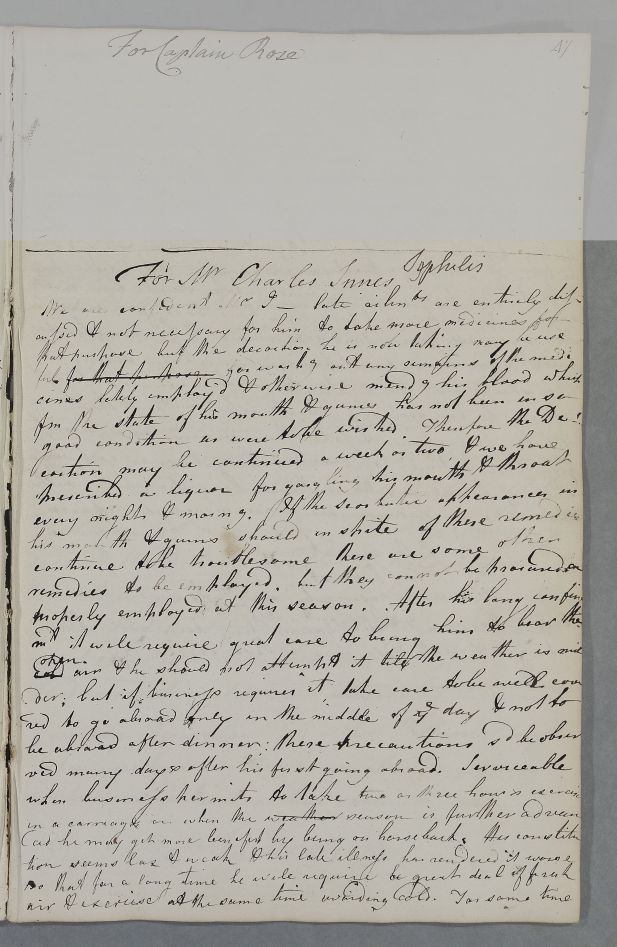 For Captain Rose
47
For Mr Charles Innes Syphilis
We are confident Mr I— late ailmts are entirely dif-
cussd & not necessary for him to take more medicines for
that purpose but the decoction he is now taking may be use
full for that purpose for washg out any remains of the medi
cines lately employd & otherwise mendg his blood which
fm the state of his mouth & gumes has not been in so
good condition as were to be wished. Therefore the De-
coction may be continued a week or two, & we have
prescribd a liquor for gargling his mouth & throat
every night & morng. If the scorbutic appearances in
his mouth & gums should in spite of these remedies
continue to be troublesome there are some other
remedies to be employed, but they cannot be procured or
properly employed at this season. After this long confine
mt it will require great care to bring him to bear the
open air & he should not attempt it till the weather is mil
der; but if business requires it take care to be well cove
red to go abroad only in the middle of ye day & not to
be abroad after dinner; these precautions sd be obser
ved many days after his first going abroad. Serviceable
when business permits to take two or three hours exercise
in a carriage or when the weather season is further advan
ced he may get more benefit by being on horseback. His constitu
tion seems lax & weak & this late illness has rendered it worse
so that for a long time he will require a great deal of fresh
air & exercise at the same time avoiding cold. For some time